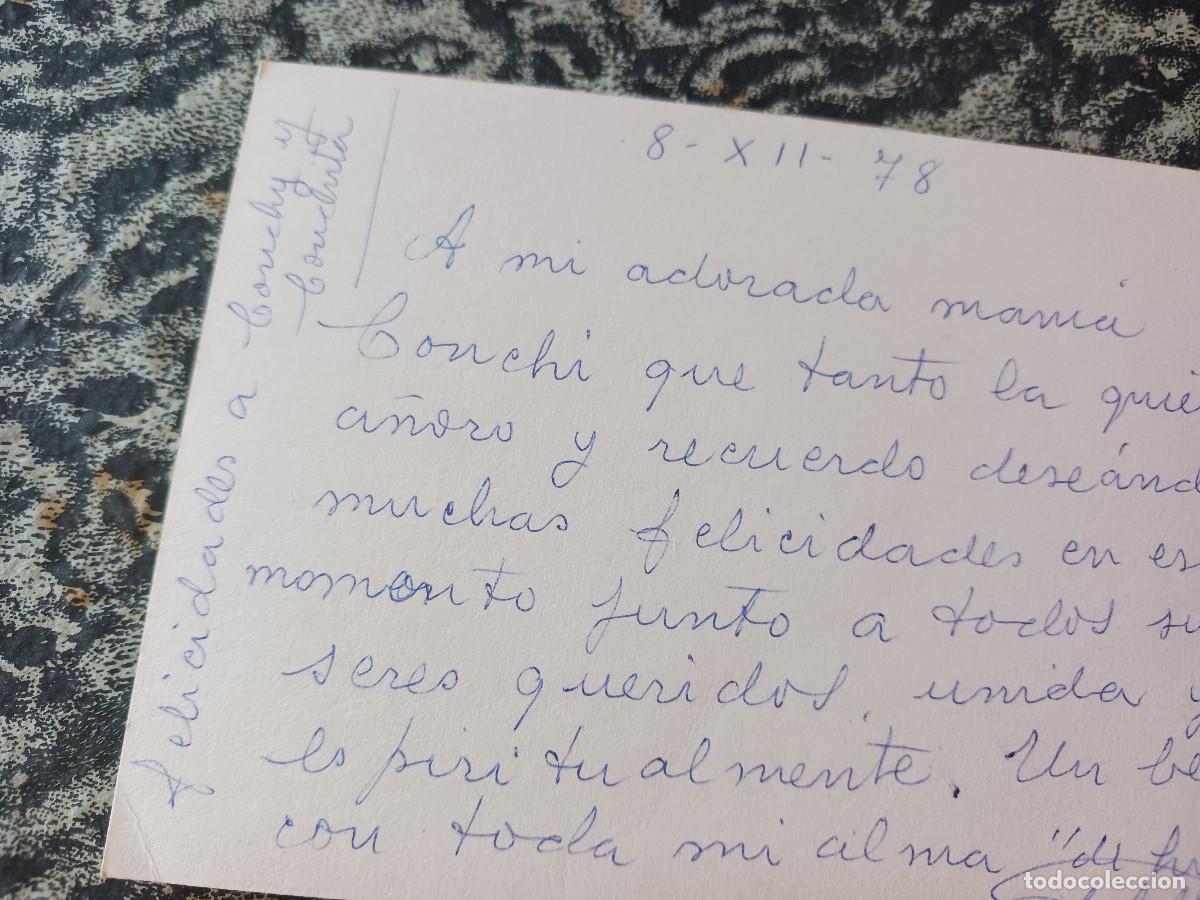 8-XII-78
A mi adorada mamá
Conchi que tanto la quie
añoro y recuerdo deseánd
muchas felicidades en es
momento junto a todos su
seres queridos, unida y
espiritualmente. Un be
con toda mi alma "de
felicidades a Conchy y
Conchita
todocoleccion